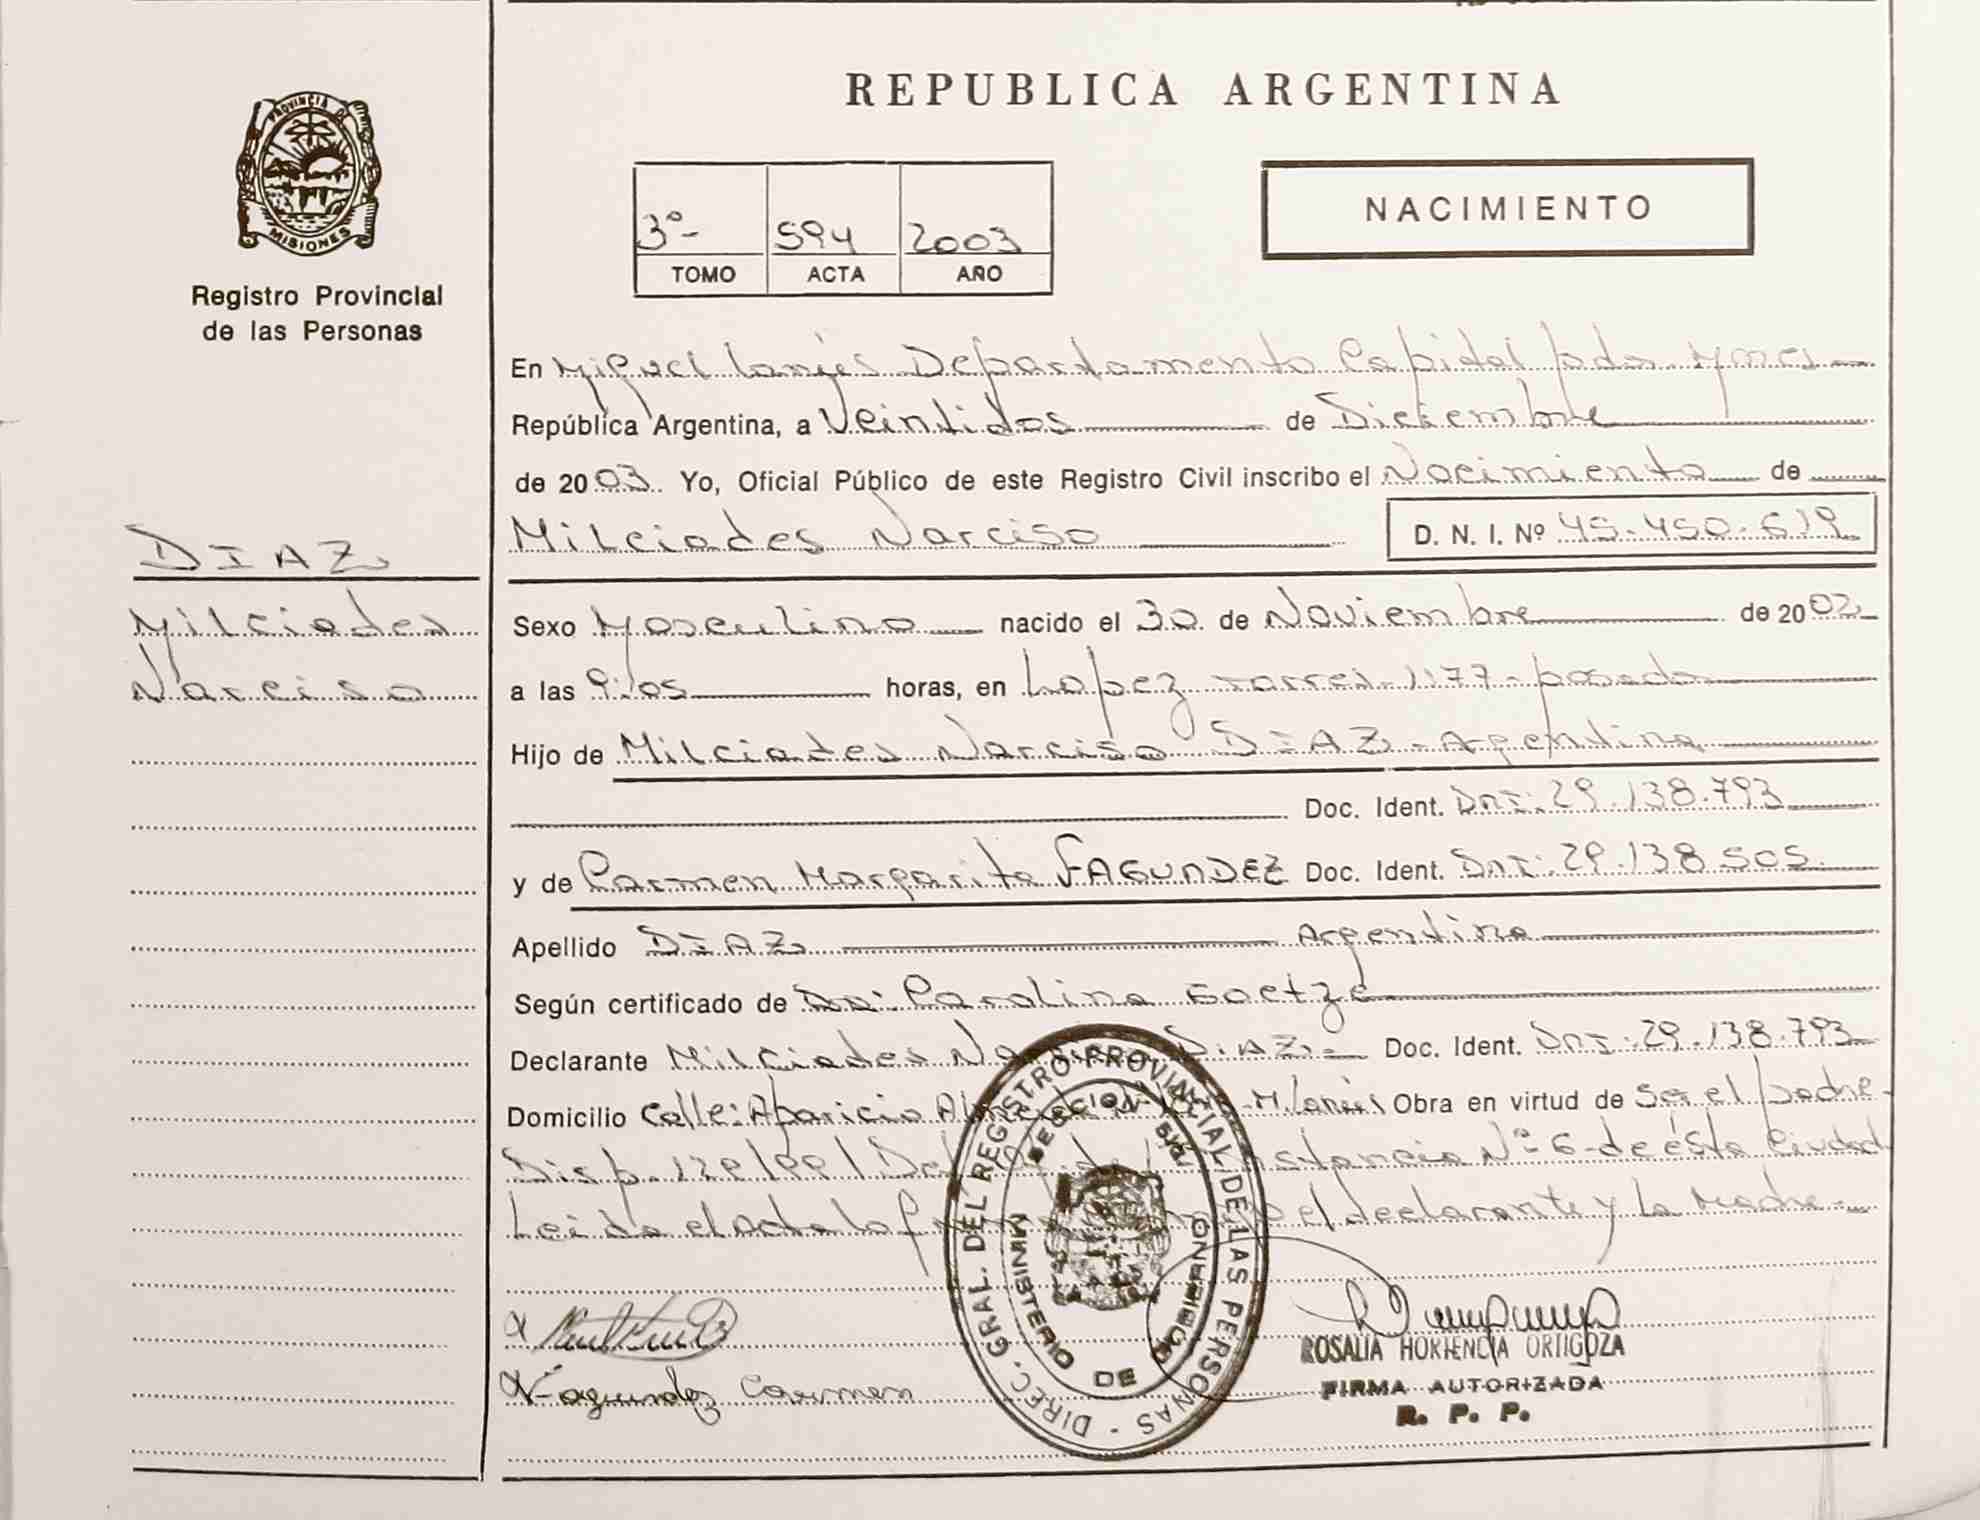 REPUBLICA ARGENTINA
PROVINCIA DE
MISIONES
Registro Provincial
de las Personas
3º- 594 2003
TOMO ACTA AÑO
NACIMIENTO
En Miguel Lanús Departamento Capital Pdas Mnes
República Argentina, a Veintidos de Diciembre
de 2003. Yo, Oficial Público de este Registro Civil inscribo el Nacimiento de
DIAZ
Milciades Narciso D. N. I. Nº 45.450.619
Milciades
Narciso
Sexo Masculino nacido el 30 de Noviembre de 2002
a las 9:05 horas, en Lopez Torres-1177-posadas
Hijo de Milciades Narciso DIAZ - Argentina
Doc. Ident. DNI: 29.138.793
y de Carmen Margarita FAGUNDEZ Doc. Ident. DNI: 29.138.505
Apellido DIAZ Argentina
Según certificado de Dra: Carolina Goetze
Declarante Milciades DIAZ.- Doc. Ident. DNI: 29.138.793
Domicilio Calle: Aparicio M. Lanús Obra en virtud de Ser el padre-
Disp. Nº 6- de ésta Ciudad
Leida el Acta la el declarante y la Madre-
DIREC. GRAL. DEL REGISTRO PROVINCIAL DE LAS PERSONAS
MINISTERIO DE GOBIERNO
SECCION
Fagundez Carmen
ROSALIA HORTENCIA ORTIGOZA
FIRMA AUTORIZADA
R. P. P.